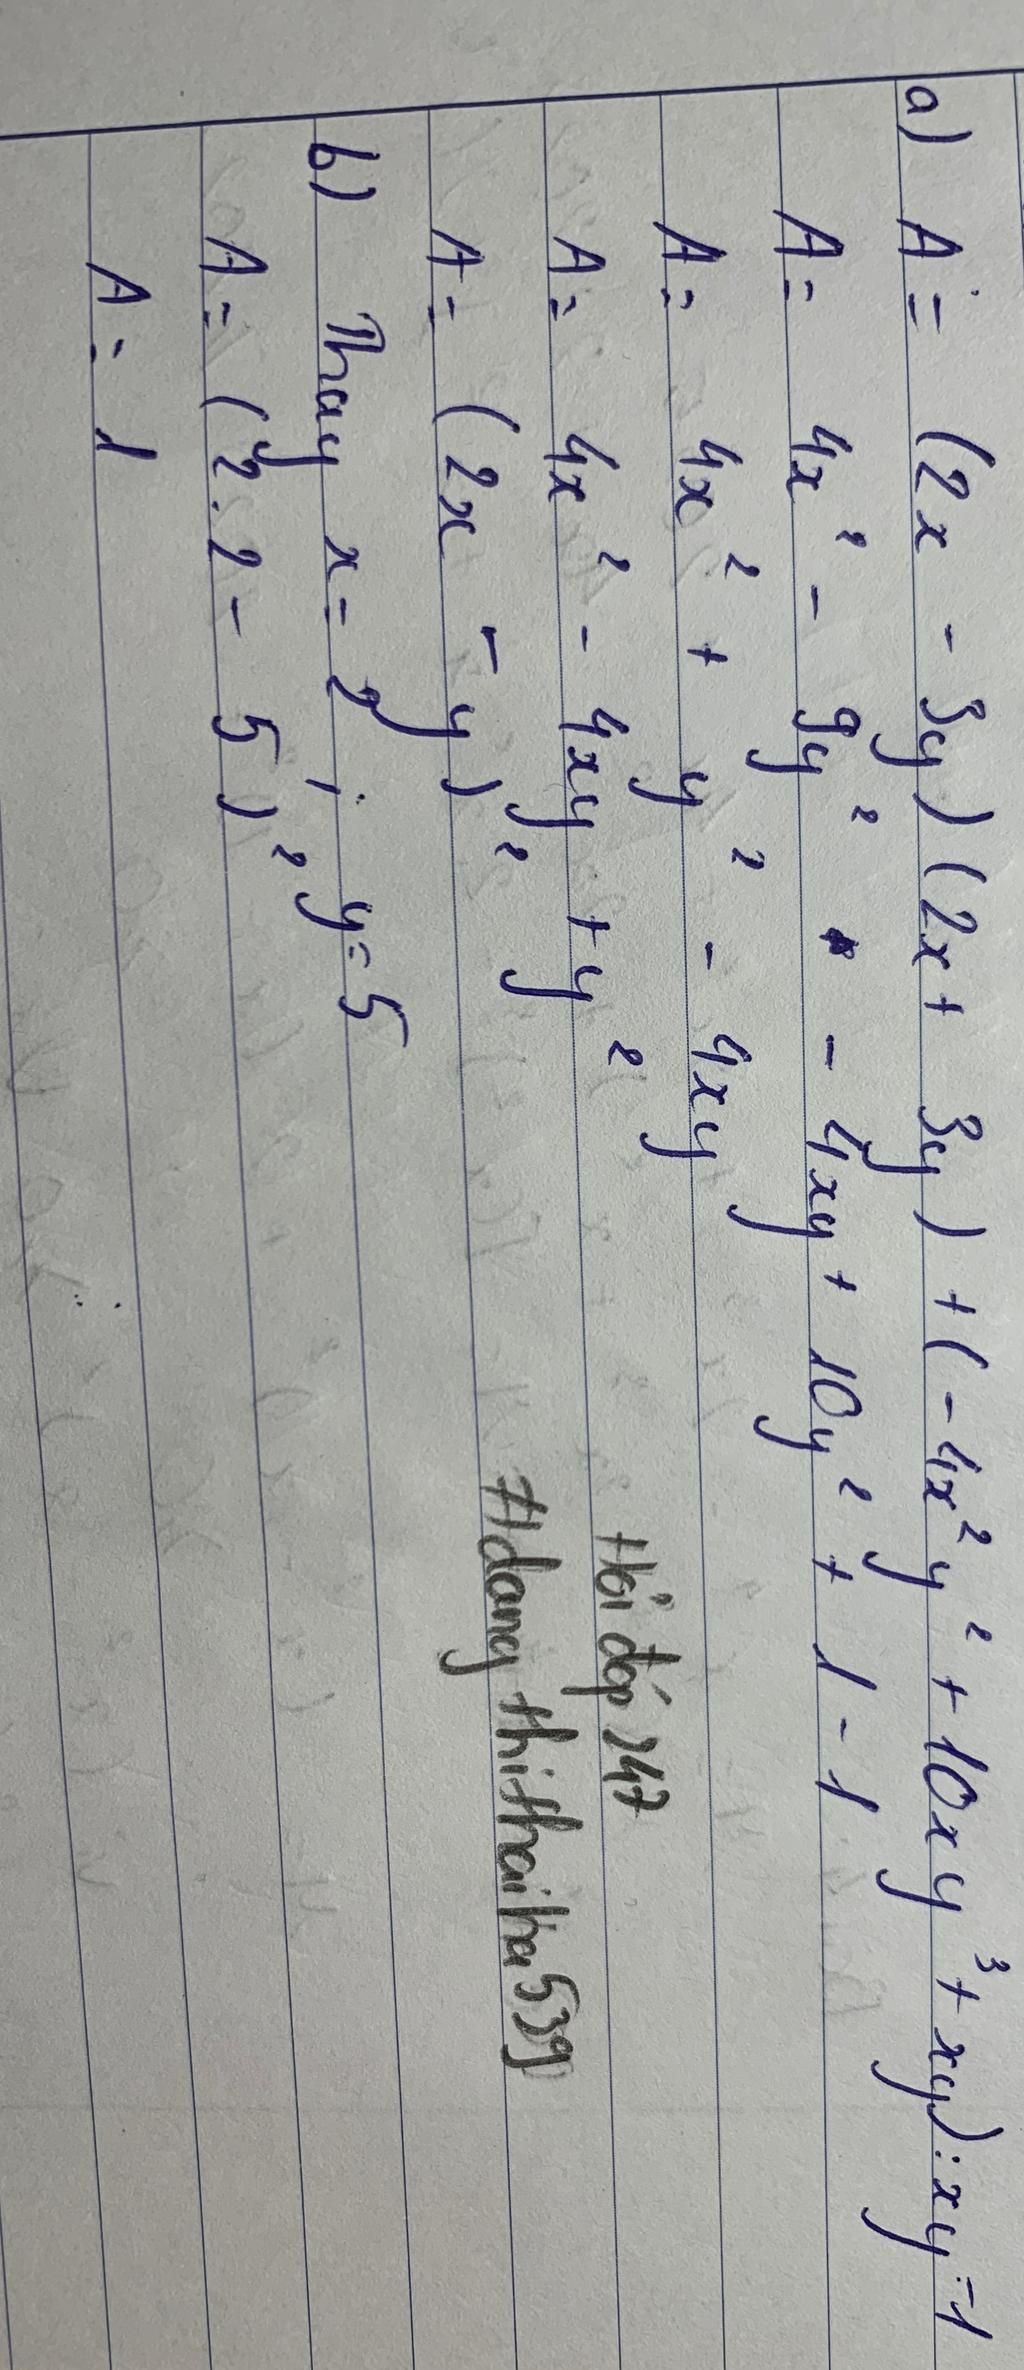 a) A = (2x - 3y)(2x + 3y) + (-4x²y² + 10xy³ + xy) : xy - 1
A = 4x² - 9y² - 4xy + 10y² + 1 - 1
A = 4x² + y² - 4xy
A = 4x² - 4xy + y²
A = (2x - y)²
b) Thay x = 2 ; y = 5
A = (2.2 - 5)²
A = 1
Hỏi đáp 247
#dang thithaiha539